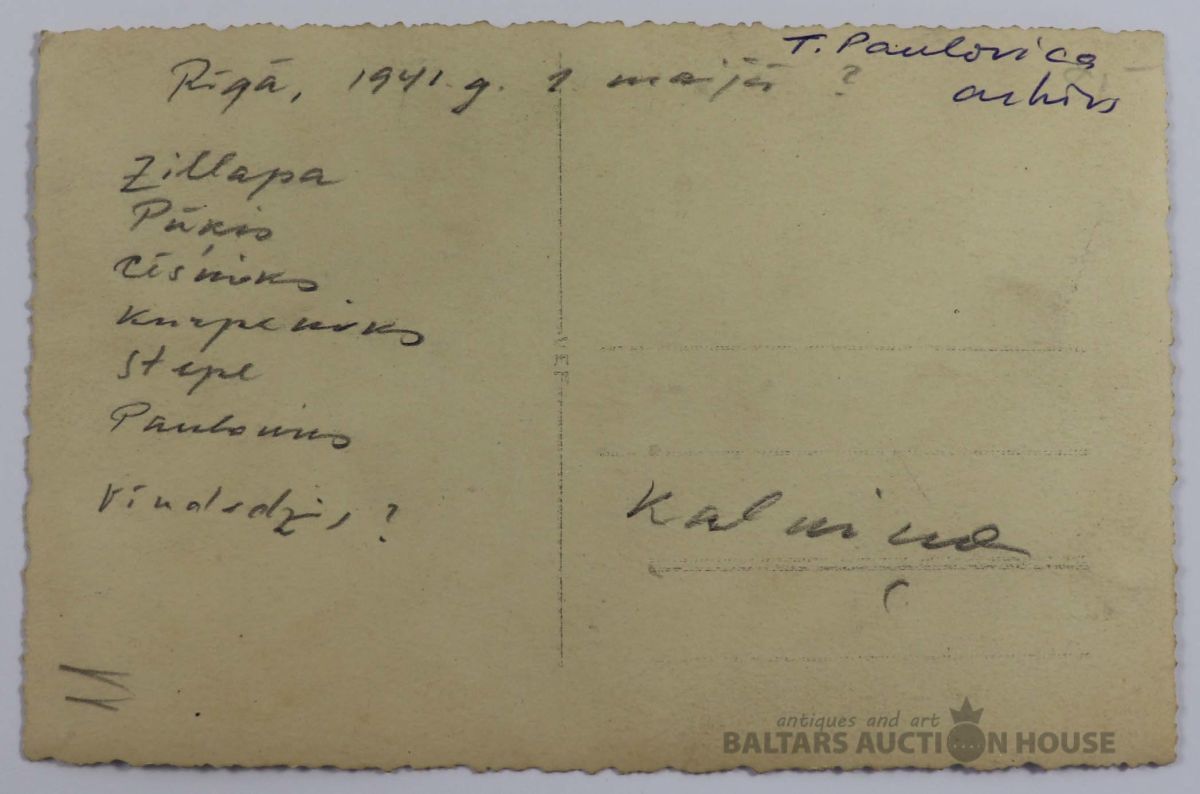 T. Paulovica
arhīvs
Rīgā, 1941. g. 1 maijā ?
Zillapa
Pūķis
Cīsniks
Kurpenieks
Stepe
Paulovics
Vindedzis ?
Kalniņa
11
antiques and art
BALTARS AUCTION HOUSE